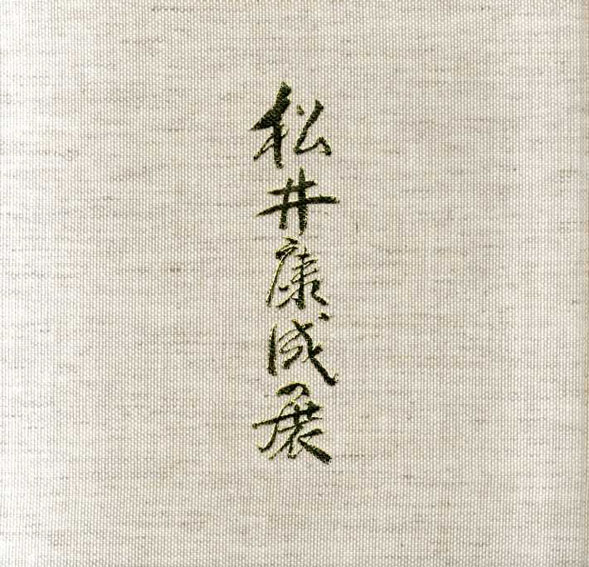 松井康成展